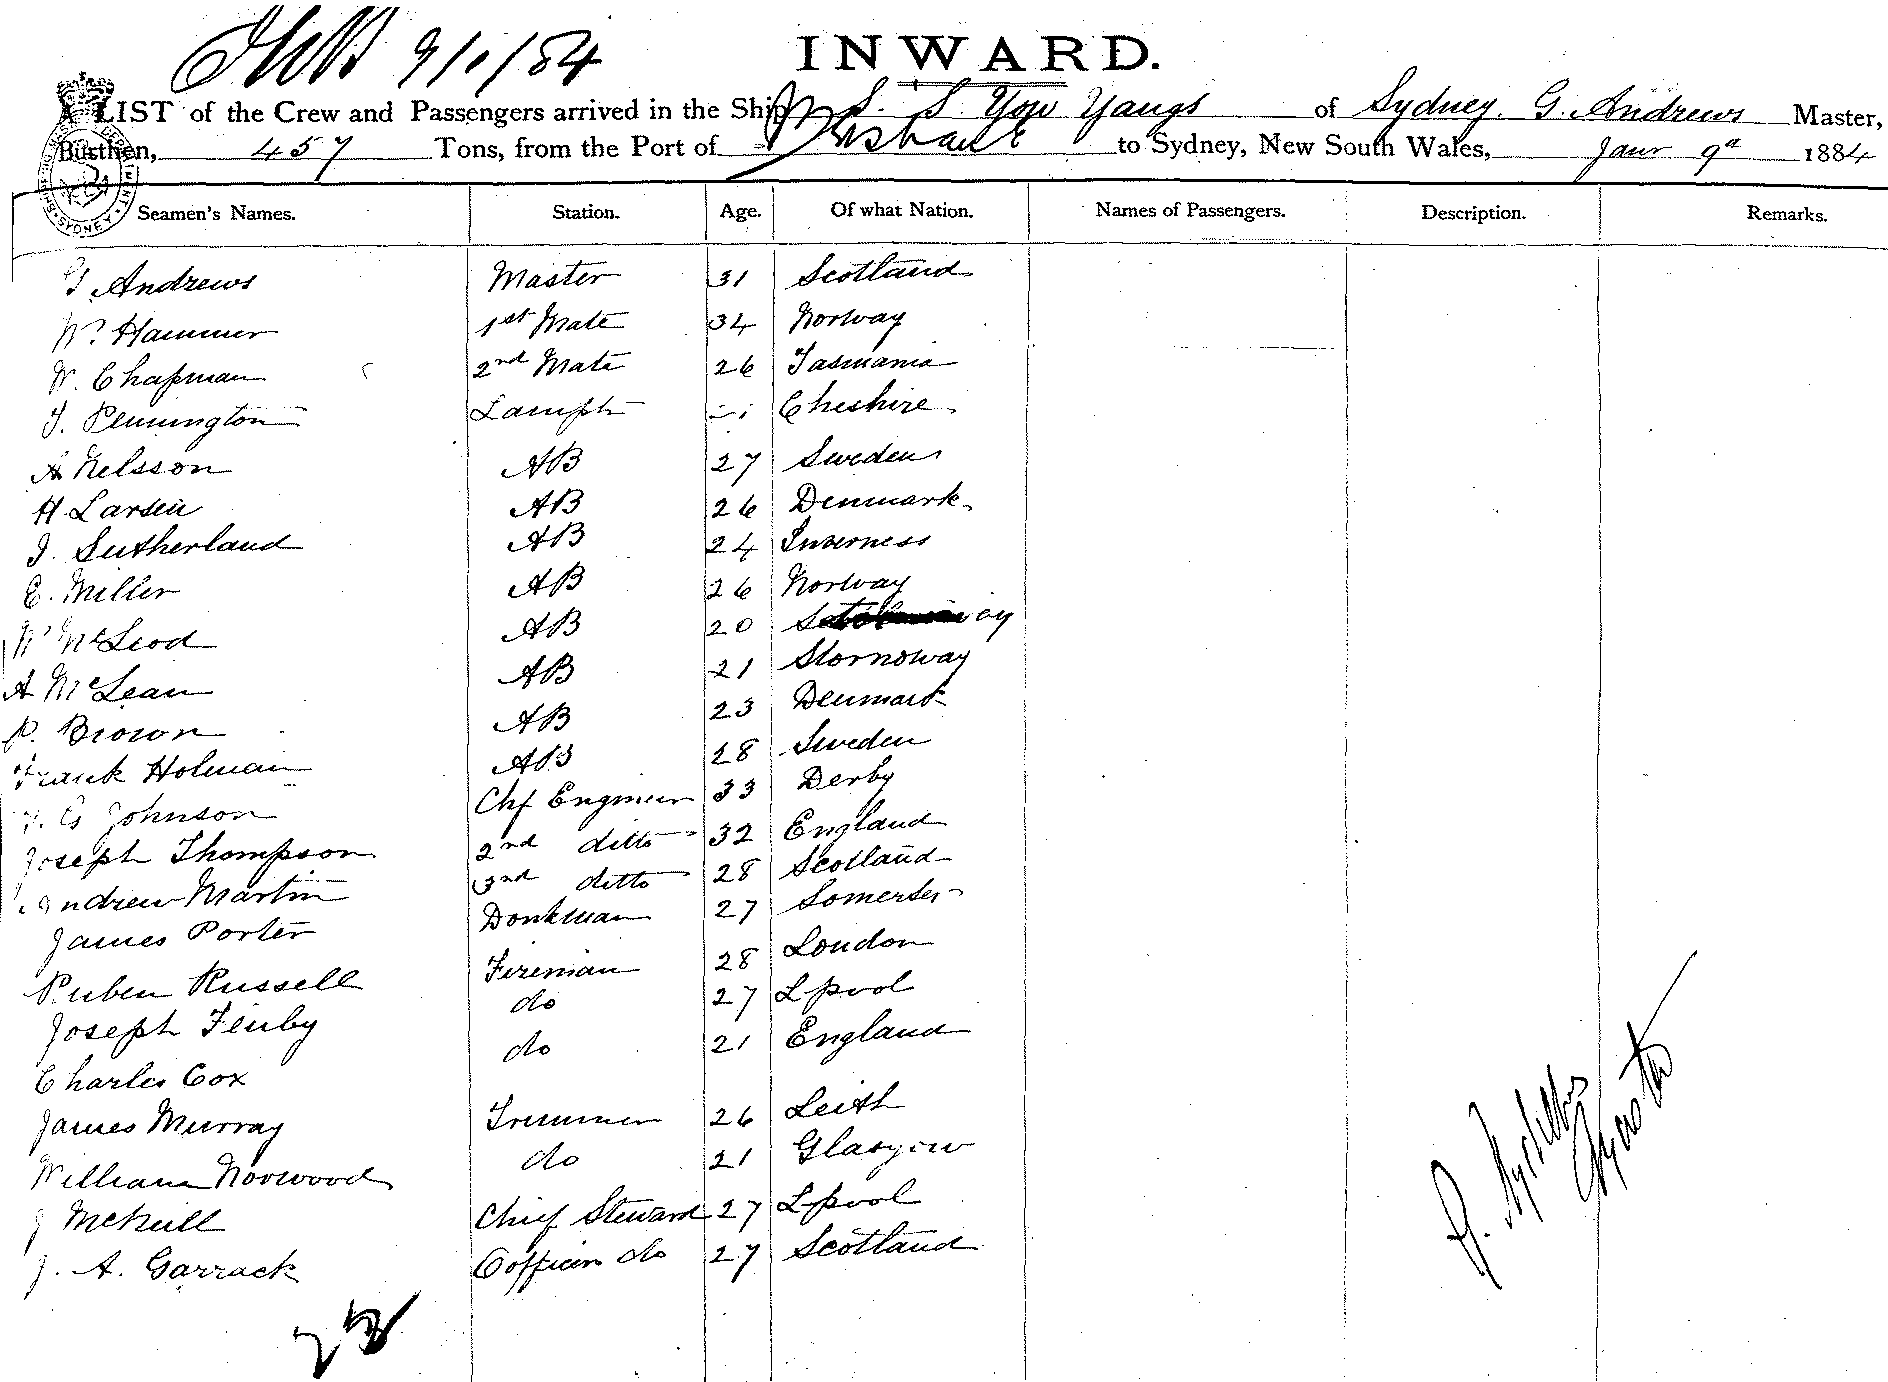 9/1/84
INWARD.
A LIST of the Crew and Passengers arrived in the Ship S. S You Yangs of Sydney. G. Andrews Master,
Burthen, 457 Tons, from the Port of Brisbane to Sydney, New South Wales, Janr 9th 1884
Seamen's Names. Station. Age. Of what Nation. Names of Passengers. Description. Remarks.
G Andrews Master 31 Scotland
Wm Hammer 1st Mate 34 Norway
W. Chapman 2nd Mate 26 Tasmania
Pennington Lamptr Cheshire
A Nelsson AB 27 Sweden
H Larsen AB 26 Denmark
J. Sutherland AB 24 Inverness
E. Miller AB 26 Norway
McLeod AB 20
A McLean AB 21 Stornoway
P. Brown AB 23 Denmark
Frank Holman AB 28 Sweden
Johnson Chf Engineer 33 Derby
Joseph Thompson 2nd ditto 32 England
Andrew Martin 3rd ditto 28 Scotland
James Porter Donkman 27 Somerset
Ruben Russell Fireman 28 London
Joseph Fenby do 27 Lpool
Charles Cox do 21 England
James Murray Trimmer 26 Leith
William Norwood do 21 Glasgow
J McNeill Chief Steward 27 Lpool
J. A. Garrack do 27 Scotland